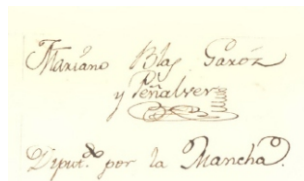 Mariano Blas Garóz
y Peñalver
Diput.do por la Mancha.